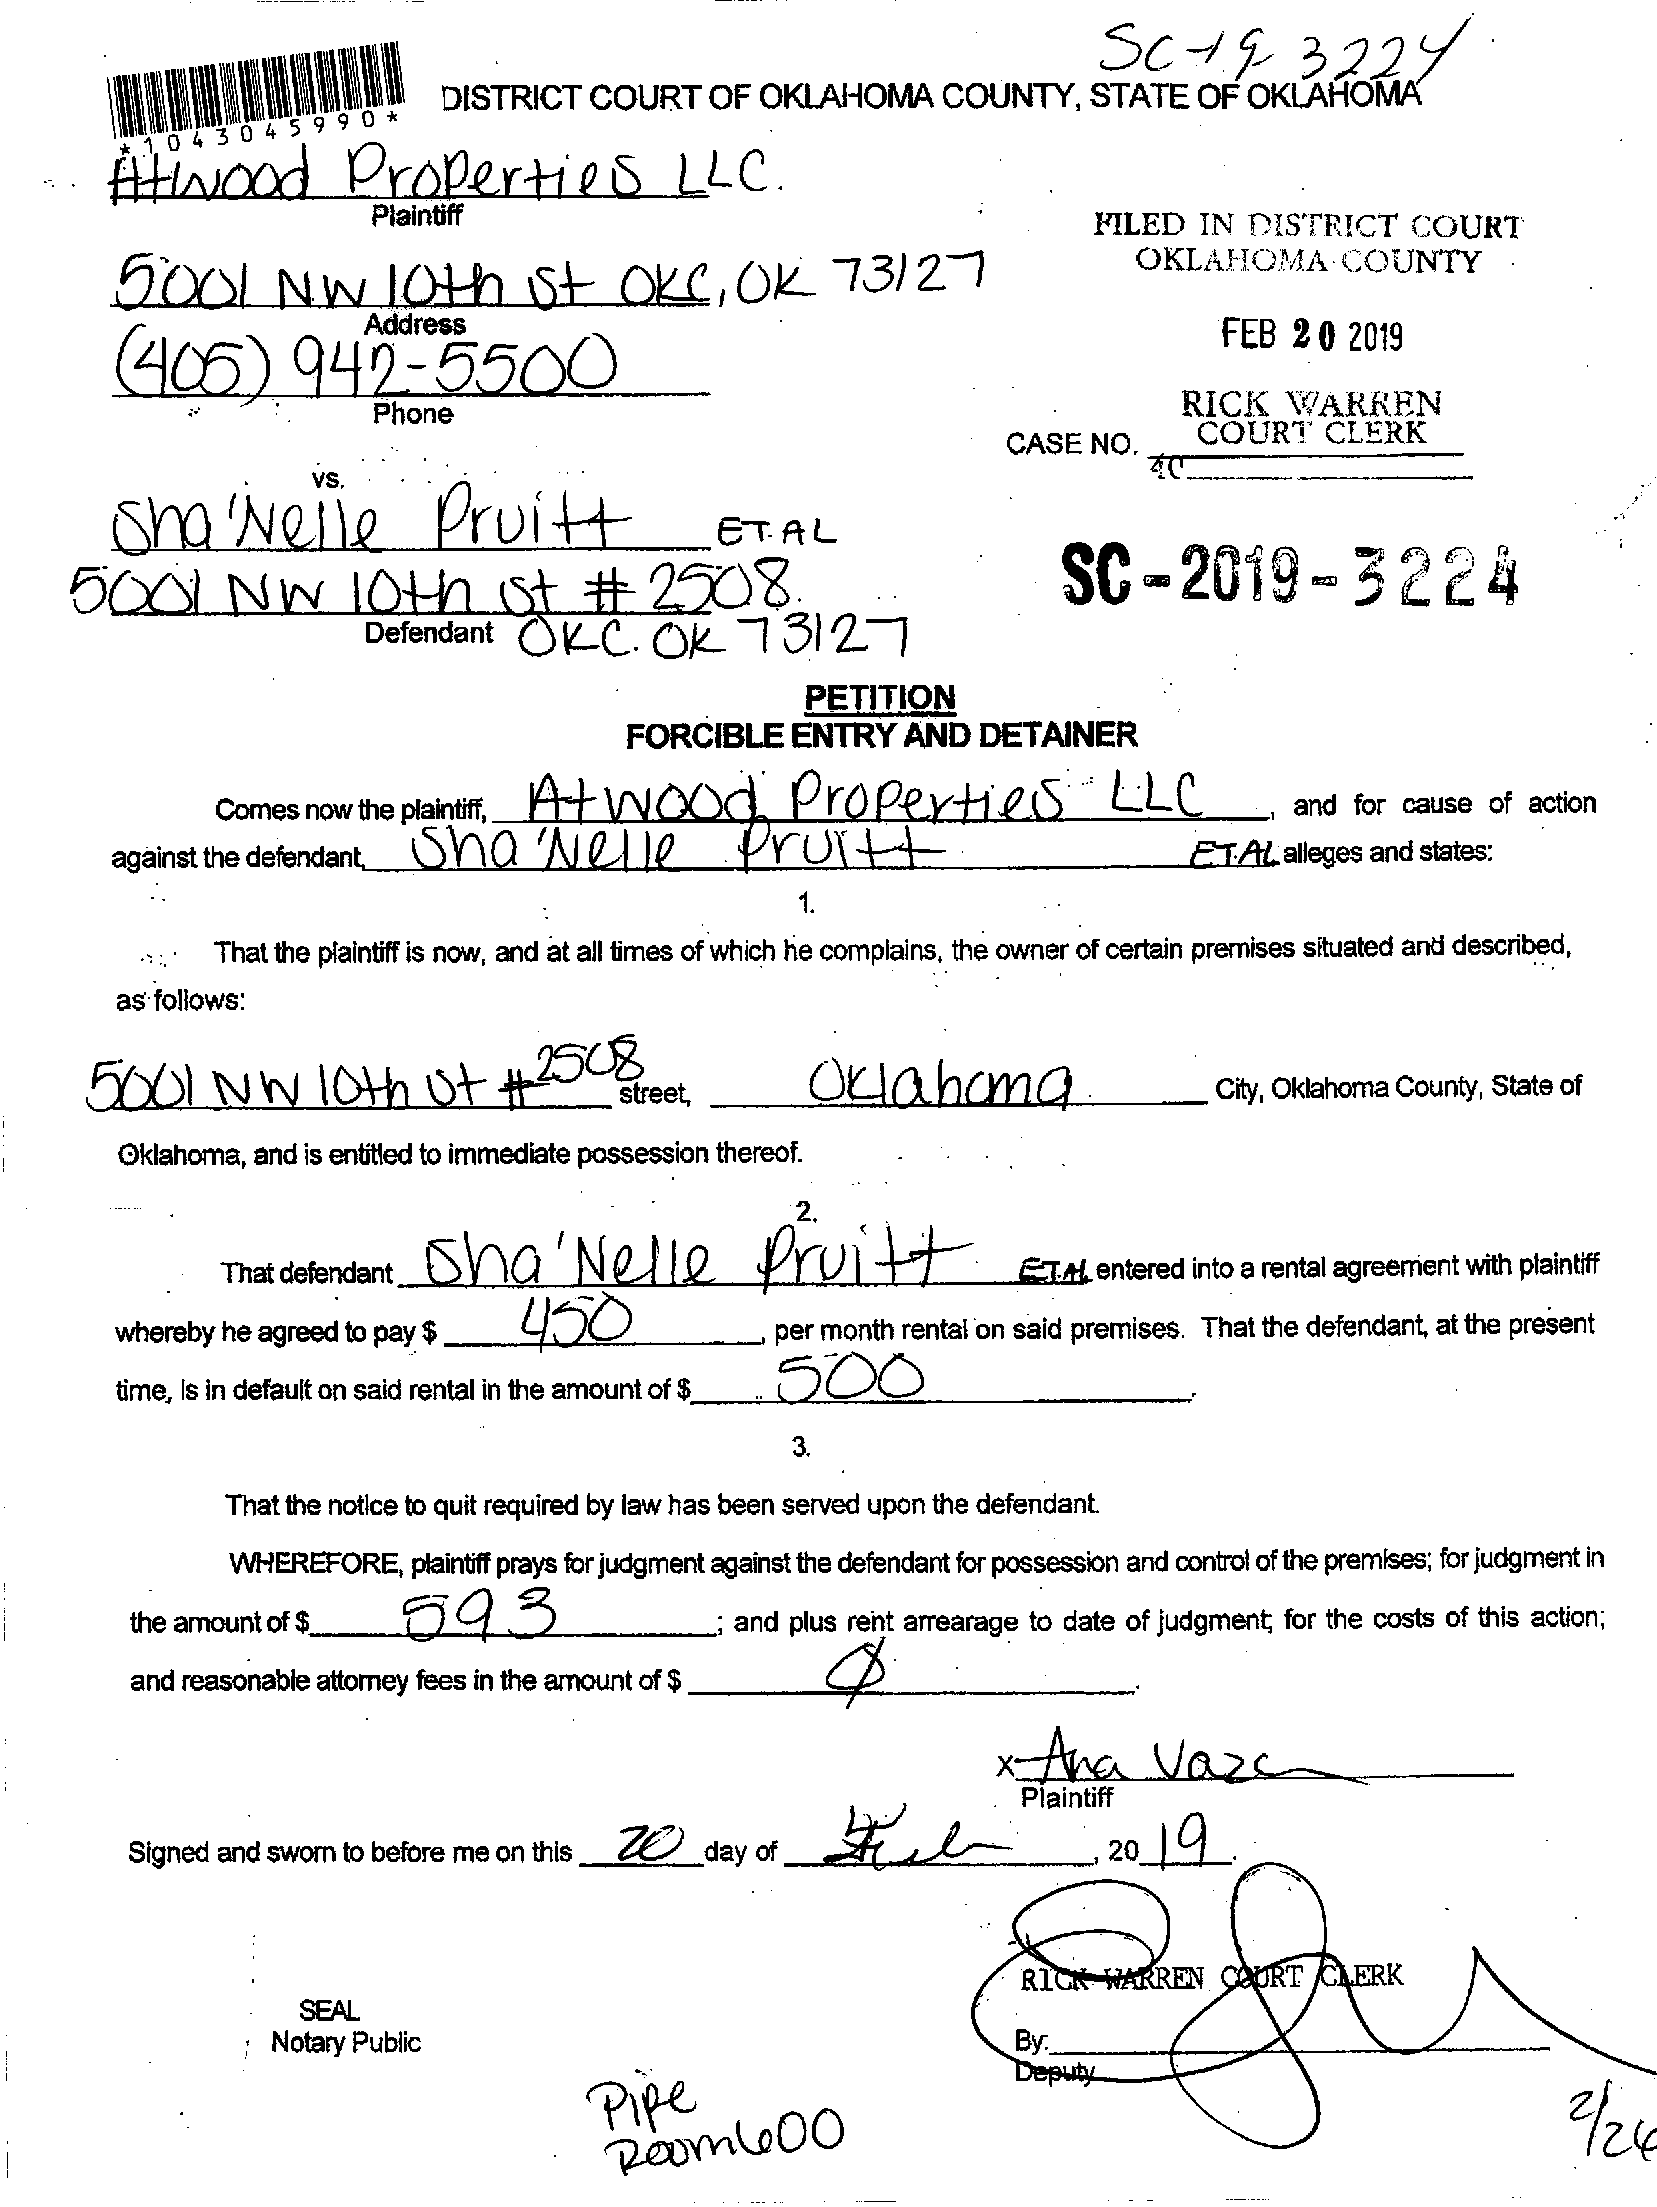 SC-19 3224
*1043045990*
DISTRICT COURT OF OKLAHOMA COUNTY, STATE OF OKLAHOMA
Atwood Properties LLC.
Plaintiff
5001 NW 10th St OKC, OK 73127
Address
(405) 942-5500
Phone
FILED IN DISTRICT COURT
OKLAHOMA COUNTY
FEB 20 2019
RICK WARREN
COURT CLERK
CASE NO.
40
vs.
Sha'Nelle Pruitt ET. AL
5001 NW 10th St # 2508.
Defendant OKC. OK 73127
SC-2019-3224
PETITION
FORCIBLE ENTRY AND DETAINER
Comes now the plaintiff, Atwood Properties LLC, and for cause of action
against the defendant, Sha'Nelle Pruitt ET.AL alleges and states:
1.
That the plaintiff is now, and at all times of which he complains, the owner of certain premises situated and described,
as follows:
5001 NW 10th St #2508 street, Oklahoma City, Oklahoma County, State of
Oklahoma, and is entitled to immediate possession thereof.
2.
That defendant Sha'Nelle Pruitt ET.AL entered into a rental agreement with plaintiff
whereby he agreed to pay $ 450, per month rental on said premises. That the defendant, at the present
time, is in default on said rental in the amount of $ 500.
3.
That the notice to quit required by law has been served upon the defendant.
WHEREFORE, plaintiff prays for judgment against the defendant for possession and control of the premises; for judgment in
the amount of $ 593; and plus rent arrearage to date of judgment; for the costs of this action;
and reasonable attorney fees in the amount of $ Ø.
x Ana Vaz
Plaintiff
Signed and sworn to before me on this 20 day of Feb, 2019.
RICK WARREN COURT CLERK
SEAL
Notary Public
By:
Deputy
Pipe
Room 600
2/26